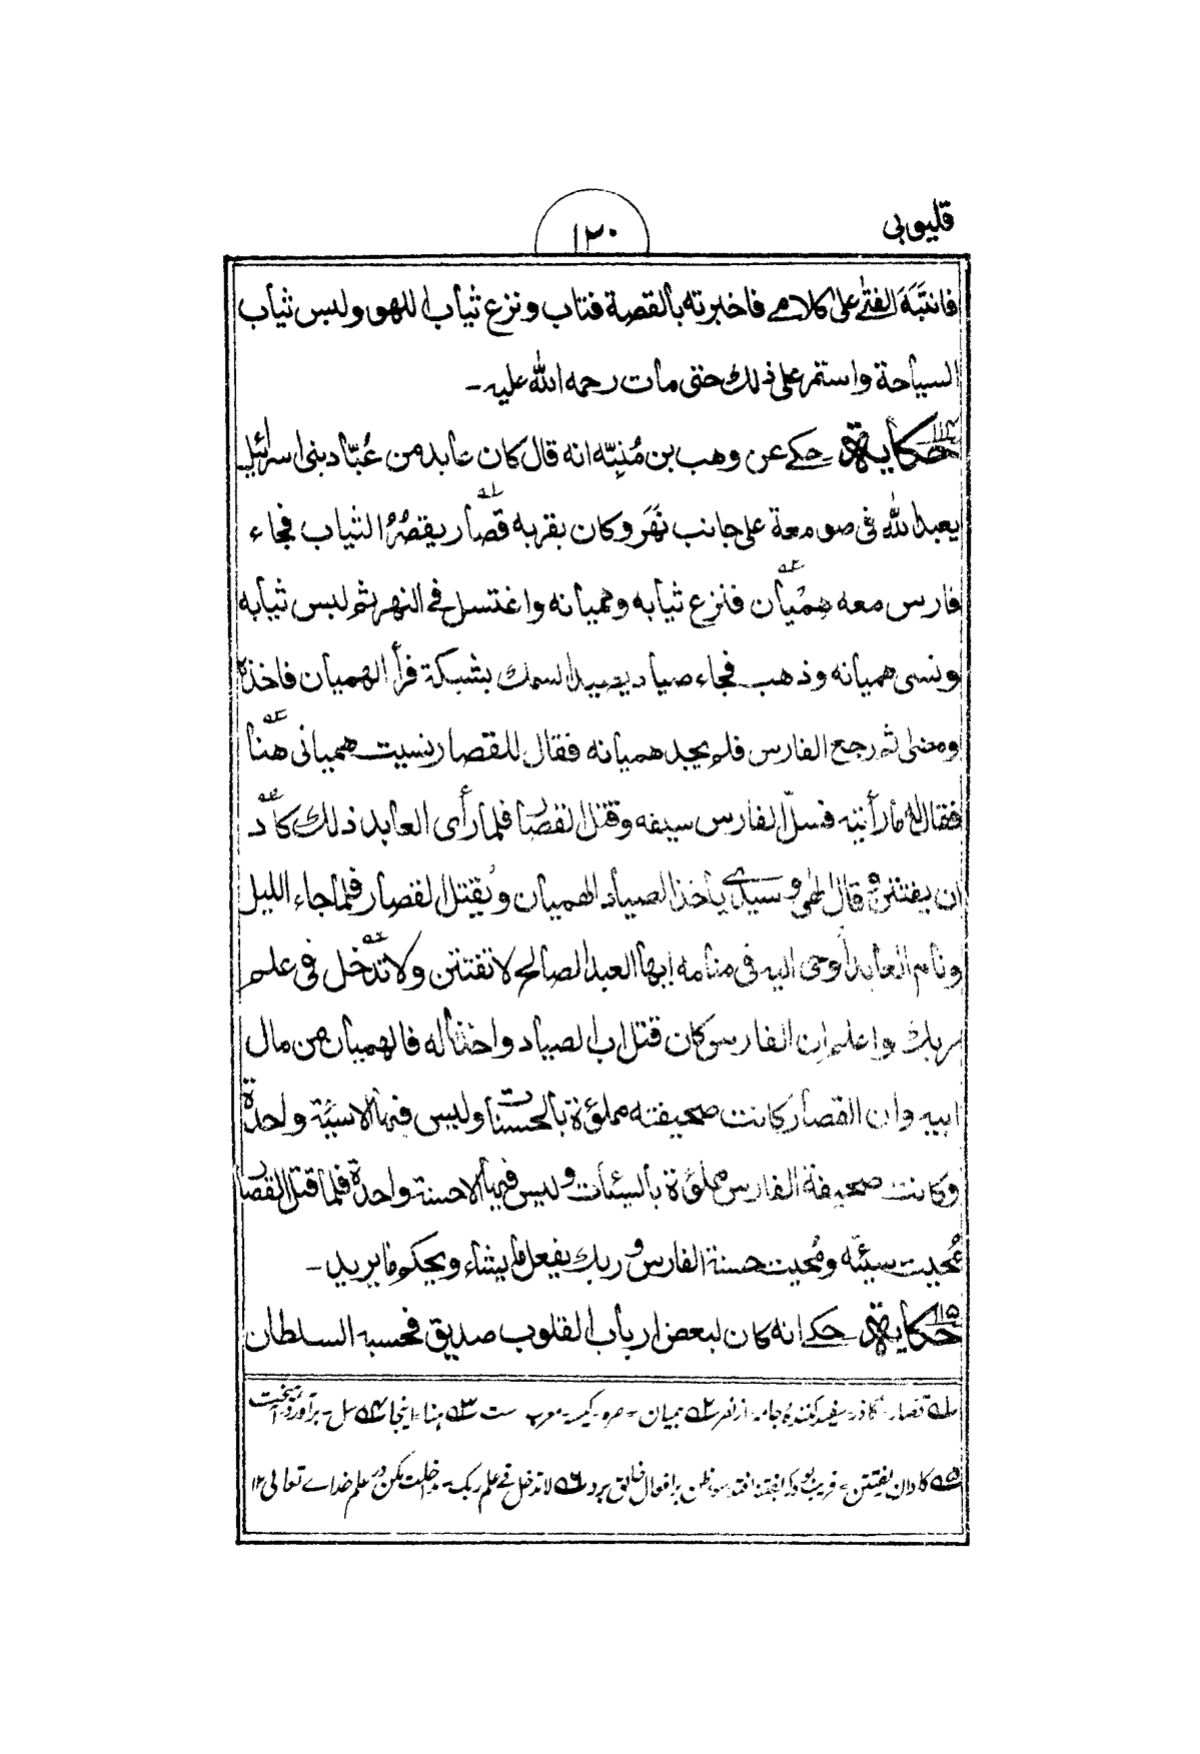 قليوبى
١٢٠
فانتبَهَ الفتى على كلامے فاخبرته بالقصة فتاب ونزع ثياب اللهو ولبس ثياب
السياحة واستمر على ذلك حتى مات رحمه الله عليه۔
حكاية ١١٤ حكے عن وهب بن مُنبِّه انه قال كان عابد من عُبّاد بنى اسرائيل
يعبد الله فى صومعة على جانب نَهَر وكان بقربه قصّار يقصُرُ الثياب فجاء
فارس معه هِمْيان فنزع ثيابه وهميانه واغتسل فے النهر ثم لبس ثيابه
ونسى هميانه وذهب فجاء صياد يصيد السمك بشبكة فرأ الهميان فاخذه
ومضى ثم رجع الفارس فلم يجد هميانه فقال للقصار نسيت هميانى هُنا
فقال له ما رأيته فسلّ الفارس سيفه وقتل القصار فلما رأى العابد ذلك كاد
ان يفتتن وقال الهى وسيدے يأخذ الصياد الهميان ويُقتل القصار فلما جاء الليل
ونام العابد أوحى اليه فى منامه ايها العبد الصالح لا تفتتن ولا تدخل فى علم
ربك واعلم ان الفارس كان قتل اب الصياد واخذ ماله فالهميان من مال
ابيه وان القصار كانت صحيفته مملؤة بالحسنات وليس فيها الا سيئة واحدة
وكانت صحيفة الفارس مملؤة بالسيئات وليس فيها الا حسنة واحدة فلما قتل القصار
مُحيت سيئته ومُحيت حسنة الفارس وربك يفعل ما يشاء ويحكم ما يريد۔
حكاية ١١٥ حكے انه كان لبعض ارباب القلوب صديق فحبسه السلطان
؎۱ قصار۔ گاذر۔ سفيد كنندہ جامہ۔ از نصر ؎۲ ہميان۔ صرہ۔ كيسہ۔ معرب ست ؎۳ ہنا۔ اينجا ؎۴ سل۔ برآورد۔
؎۵ كاد ان يفتتن۔ قريب بود كہ بفتنہ افتد۔ سوء ظن بر افعال خالق برد ؎۶ لا تدخل فے علم ربك۔ مداخلت مكن در علم خداے تعالى ١٢